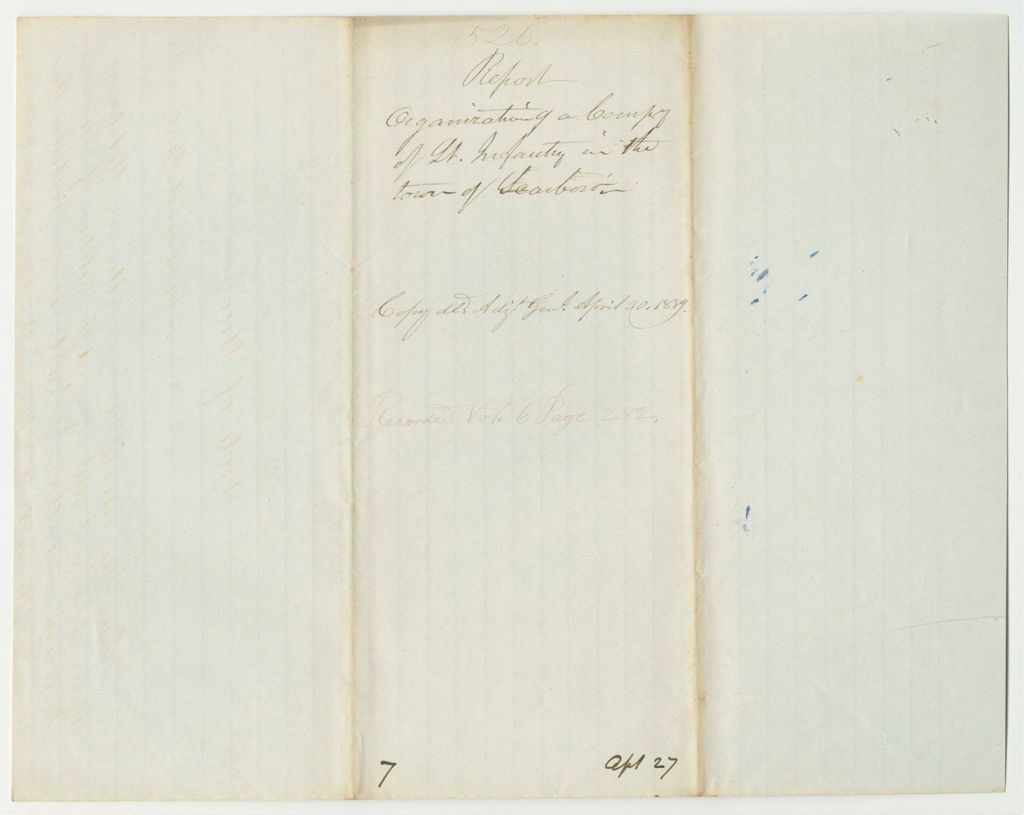 526.
Report
Organizating a Compy
of Lt. Infantry in the
town of Scarboro'
Copy dld Adjt Genl. April 30. 1839.
Recorded Vol. 6 Page 282.
7 Apl 27